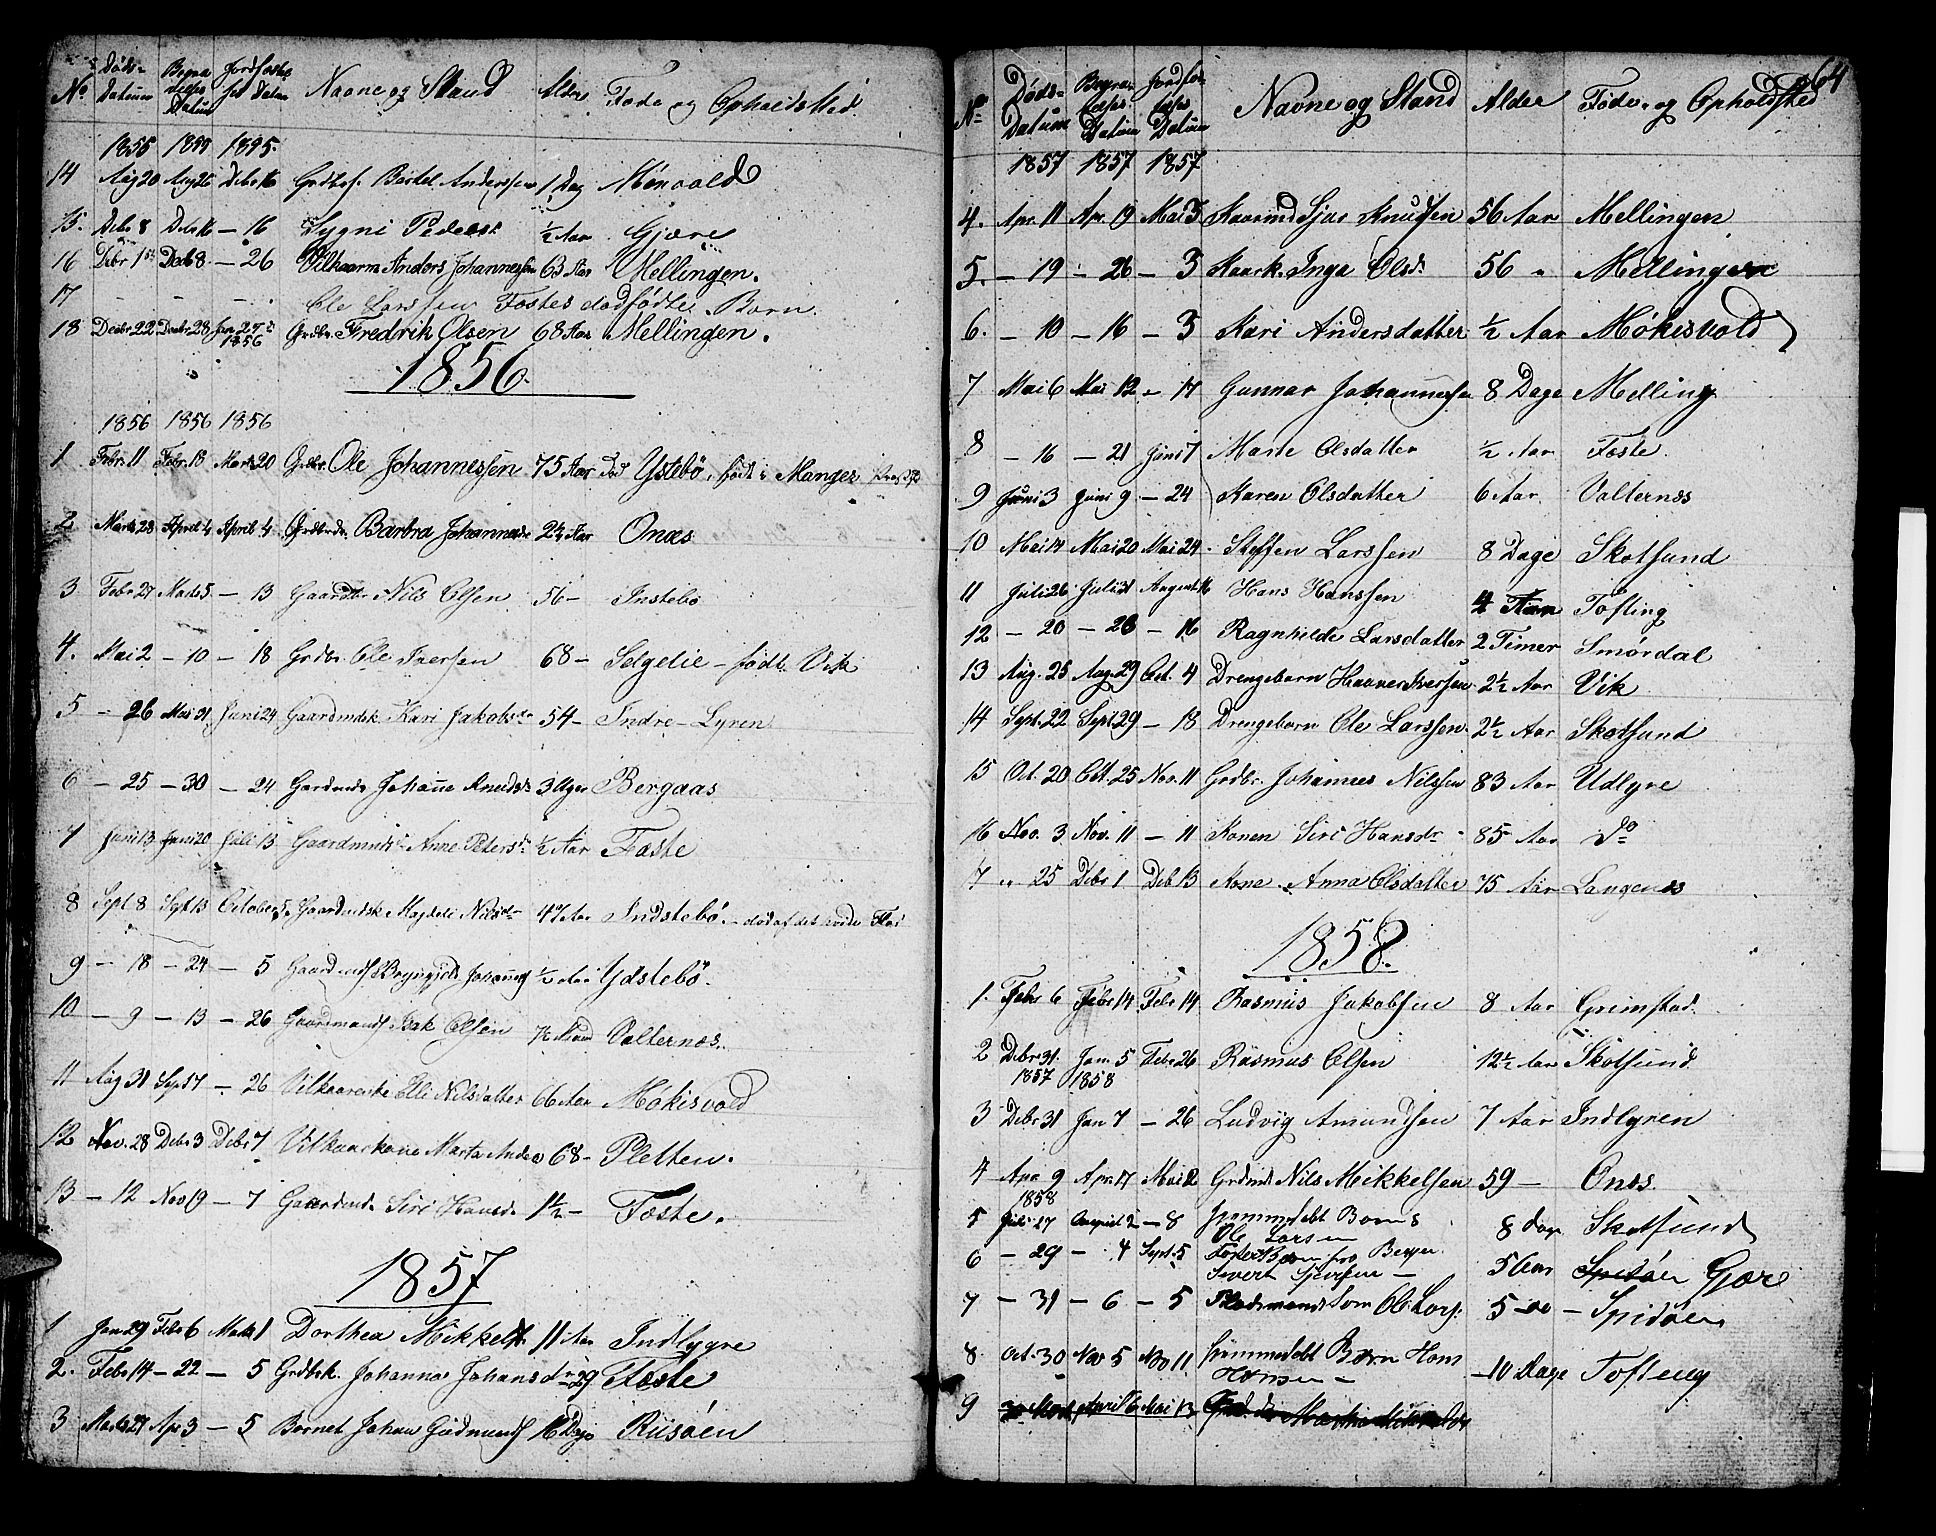 No Døds- Datum Begra velses Datum Jordfæstel sel Datum Navne og Stand Alder Føde og Opholds Sted.
1855 1855 1855.
14 Aug 20 Aug 26 Debr 16 Grdbrs. Bertel Anderssen 1 Dag Mønvold
15. Debr 8 Debr 16 — 16 Sygni Pedersd. ½ Aar Gjære
16 Debr 1st Decb 8. — 26 Vilkaarm. Anders Johannessen 63 Aar Mellingen.
17 - - - Ole Larssen Fostes dødfødte Barn.
18 Decbr 22 Decbr 28 Jan 27de 1856 Grdbr. Fredrik Olsen 68 Aar Mellingen.
1856.
1856 1856 1856
1 Febr. 11 Febr. 18 Marts 20 Grdbr. Ole Johannessen 75 Aar Død Ystebö, född i Manger
2 Marts 28 April 4 April 4 Grdbrds. Barbra Johannesdr 2½ Aar Onæs
3 Febr. 27 Marts 5 — 13 Gaardbr Nils Olsen 56 — Instebø
4. Mai 2 — 10 — 18 Grdbr. Ole Iversen 68 — Selgelie — født Vik
5 — 26 Mai 31 Juni 24 Gaardmdsk Kari Jakobsdr 54 — Indre-Lyren
6 — 25 — 30 — 24 Gardmds Johanne Knudsdr 3 Uger Bergaas
7 Juni 13 Juni 20 Juli 13 Gaardmds. Anne Petersdr ½ Aar Fæste
8 Sept 8 Sept 13 October 5. Gaardmdsk Magdeli Nilsdr 47 Aar Indstebö. — död af det hvide Flød
9 — 18 — 24 — 5 Gaardmds Brynild Johannes ½ Aar Ydstebö.
10 — 9 — 13 — 26 Gaardmands. Isak Olsen Valternæs.
11 Aug 31 Sept 7 — 26 Vilkaarsenke Elli Nilsdatter 66 Aar Møkisvold
12 Nov. 28 Debr 3 Debr 7 Vilkaarskone Marta Andsd 68 — Pletten.
13 — 12 Nov 19 — 7 Gaardmds. Siri Hansd. 1½ — Fæste.
1857
1 Jan 29 Febr 6 Marts 1 Dorthea Mikkelsd. 11 Aar Indlygre
2. Febr 14 — 22 — 5 Grdbsk. Johanna Johansdr 29 Fæste
3 Marts 27 Apr 3 — 5 Barnet Johan Gudmunds 16 Dage Risøen
64
No Døds- Datum Begra- velses Datum Jordfæ- telses Datum Navne og Stand Alder Føde- og Opholdsted
1857 1857 1857
4. Apr. 11 Apr. 19 Mai 3 Kaarmd Sjur Knudsen 56 Aar Mellingen
5. — 19 — 26 — 3 Kaark. Inga Olsd. 56 " Mellingen
6. — 10 — 16 — 3 Kari Andersdatter ½ Aar Møkisvold
7 Mai 6 Mai 12 — 17 Gunnar Johannessen 8 Dage Melling
8 — 16 — 21 Juni 7 Marie Olsdatter ½ Aar Foste.
9 Juni 3 Juni 9 — 24 Karen Olsdatter 6 Aar Valternæs
10 Mai 14 Mai 20 Mai 24. Steffen Larssen 8 Dage Skotsund
11 Juli 26 Juli 31 August 16 Hans Hanssen 4 Aar Tofting
12 — 20 — 28 — 16 Ragnhilde Larsdatter 2 Timer Smørdal
13 Aug. 25 Aug. 29 Oct. 4 Drengebarn Haaver Iversen 2½ Aar Vik
14 Sept. 22 Sept 29 — 18 Drengebarn Ole Larssen 2½ Aar Skotsund
15 Oct. 20 Oct. 25 Nov. 11 Grdbr. Johannes Nilssen 83 Aar Udlyre
16 Nov. 3 Nov. 11 — 11 Konen Siri Hansdr 85 Aar Do
17 " 25 Debr 1 Deb. 13 Kone. Anna Olsdatter 75 Aar Langenæs
1858.
1. Febr 6 Febr 14 Febr 14 Rasmus Jakobsen 8 Aar Grimstad.
2 Debr. 31. 1857 Jan. 5 1858 Febr. 26 Rasmus Olsen 12½ Aar Skotsund.
3 Debr 31 Jan 7 — 26 Ludvig Amundsen 7 Aar Indlyren
4 Apr 9 1858 Apr. 17 Mai 12 Grdmd Nils Mikkelsen 59 — Onæs.
5 Juli 27 August 2 — 8 hjemmedøbt Barn Ole Larsen 8 dage Skotsund
6 — 29 — 4 Sept. 5 Foster Barn fra Bergen Sivert Sjursen — 5 Aar Spidöen Gjære
7 — 31 — 6 — 5 Pladsmands Søn Ole Lars. 5 — do — Spidöen
8 Oct. 30 Nov 5 Nov 11 hjemmedøbt Barn Hans Hansen — 10 Dage Tofteng
9 30 Marts April 6 Mai 13